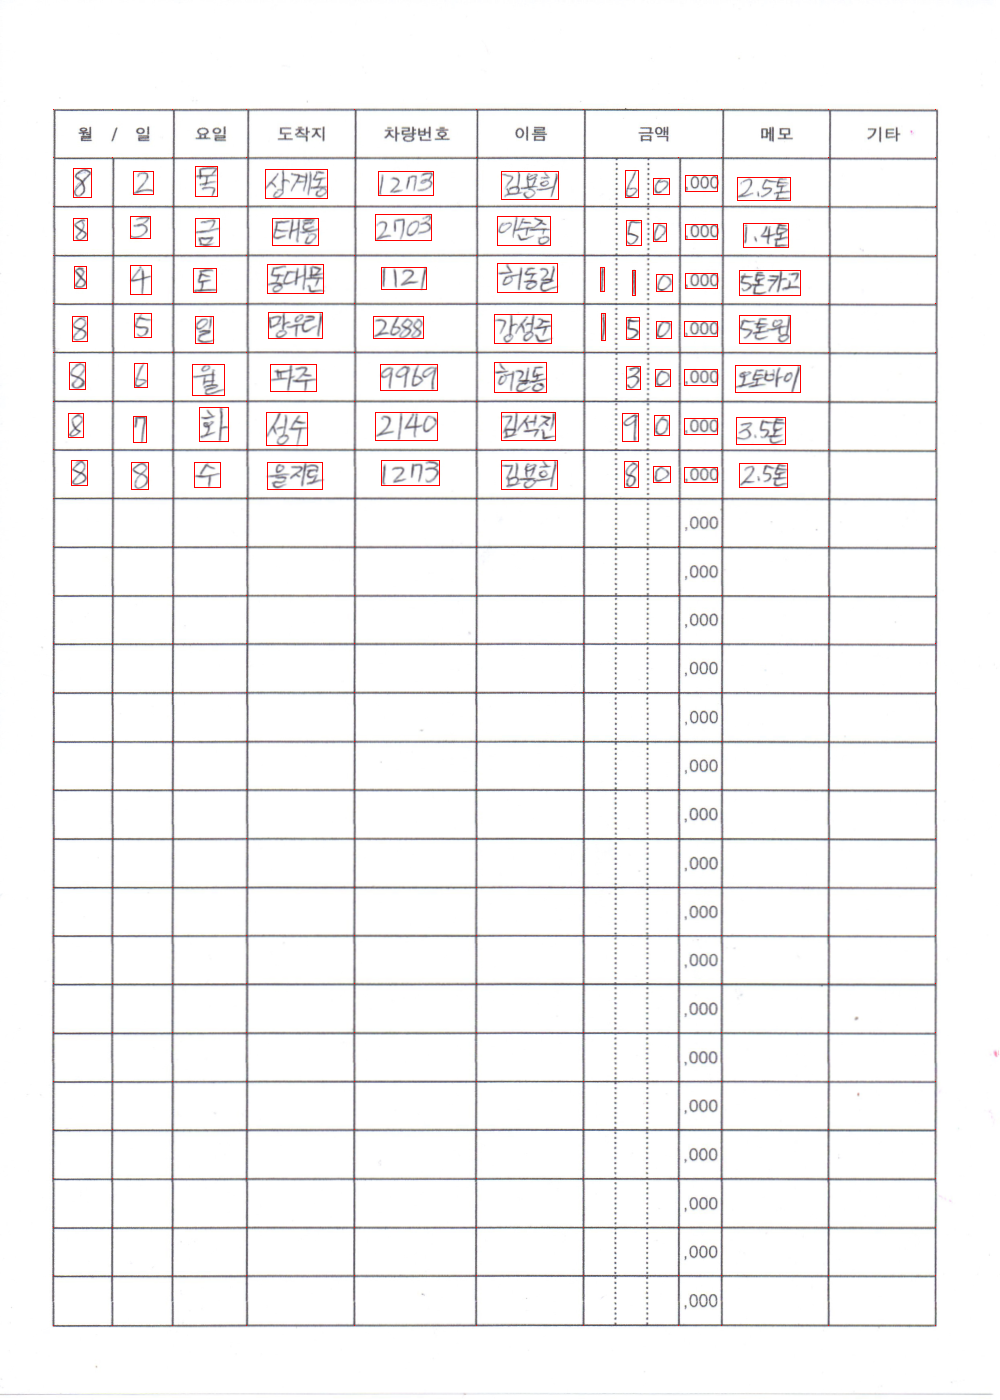 월 / 일 요일 도착지 차량번호 이름 금액 메모 기타
8 2 목 상계동 1273 김용희 6 0 ,000 2.5톤
8 3 금 태릉 2703 이순중 5 0 ,000 1.4톤
8 4 토 동대문 1121 허동길 1 1 0 ,000 5톤카고
8 5 일 망우리 2688 강성준 1 5 0 ,000 5톤윙
8 6 월 파주 9969 허길동 3 0 ,000 오토바이
8 7 화 성수 2140 김석진 9 0 ,000 3.5톤
8 8 수 을지로 1273 김용희 8 0 ,000 2.5톤
,000
,000
,000
,000
,000
,000
,000
,000
,000
,000
,000
,000
,000
,000
,000
,000
,000